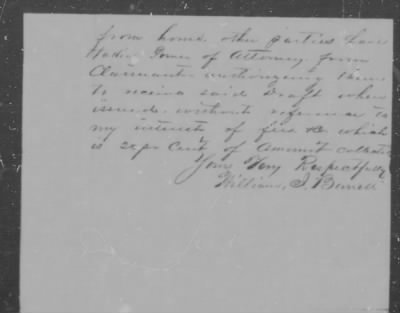 from home other parties have
Power of Attorney from
Claimant authorizing them
to receive said Draft when
issued without reference to
my interest of fees &c which
is per Cent of Amount collected
Yours Very Respectfully
William